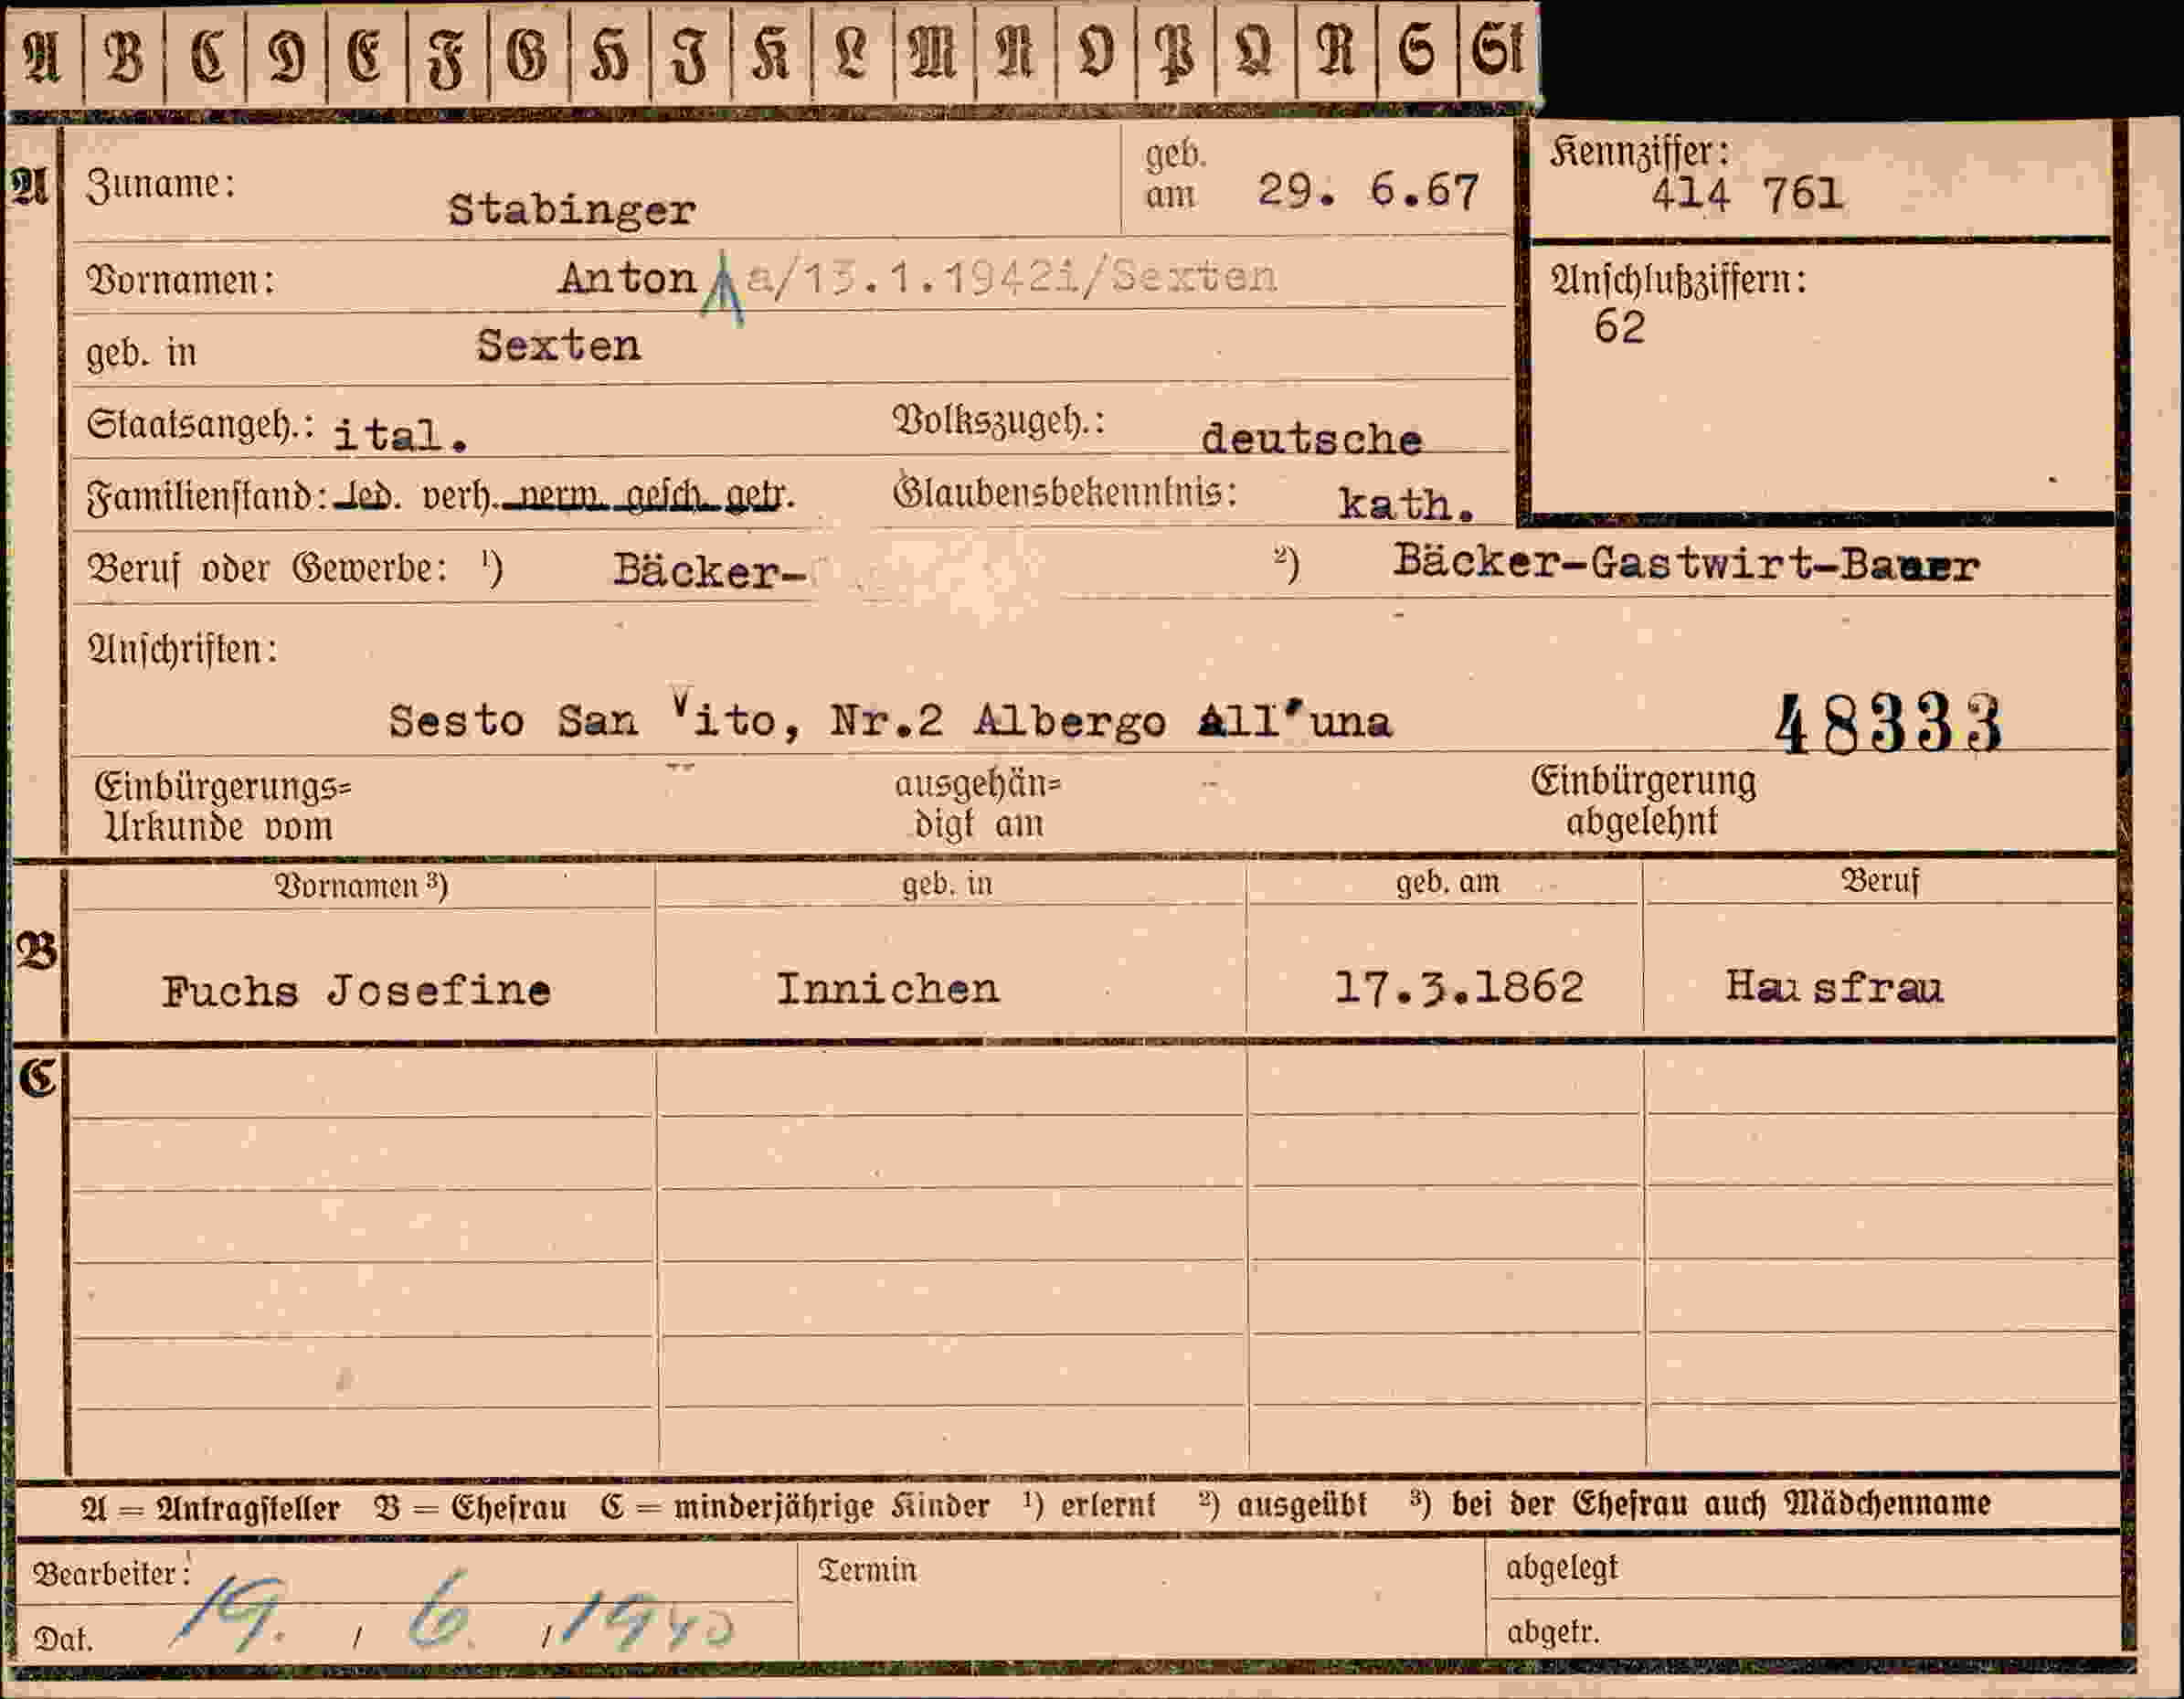 A B C D E F G H J K L M N O P Q R S St
A
Zuname: Stabinger
geb. am 29. 6.67
Kennziffer:
414 761
Vornamen: Anton a/13.1.1942i/Sexten
Anschlußziffern:
62
geb. in Sexten
Staatsangeh.: ital. Volkszugeh.: deutsche
Familienstand: led. verh. verw. gesch. getr. Glaubensbekenntnis: kath.
Beruf oder Gewerbe: ¹) Bäcker- ²) Bäcker-Gastwirt-Bauer
Anschriften:
Sesto San Vito, Nr.2 Albergo All'una 48333
Einbürgerungs= ausgehän= Einbürgerung
Urkunde vom digt am abgelehnt
B
Vornamen ³) geb. in geb. am Beruf
Fuchs Josefine Innichen 17.3.1862 Hausfrau
C
A = Antragsteller B = Ehefrau C = minderjährige Kinder ¹) erlernt ²) ausgeübt ³) bei der Ehefrau auch Mädchenname
Bearbeiter: Termin abgelegt
Dat. 19. / 6. / 1940 abgetr.